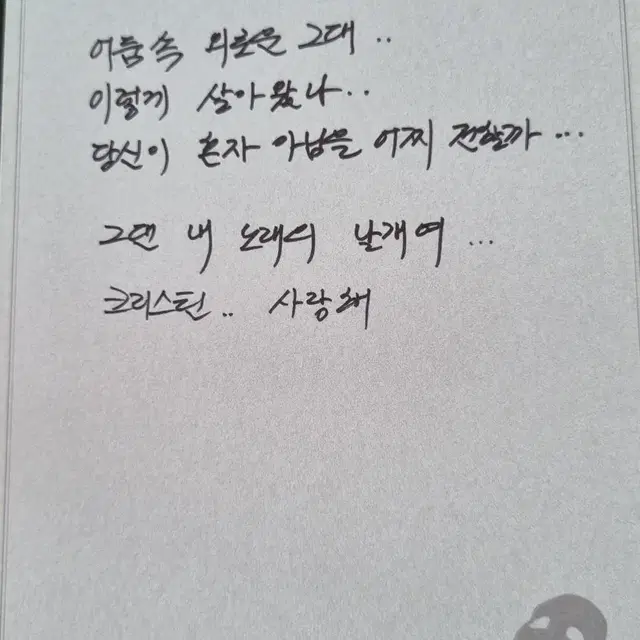 어둠속 외로운 그대..
이렇게 살아왔나...
당신이 혼자 아님을 어찌 전할까...
그댄 내 노래의 날개여...
크리스틴.. 사랑해